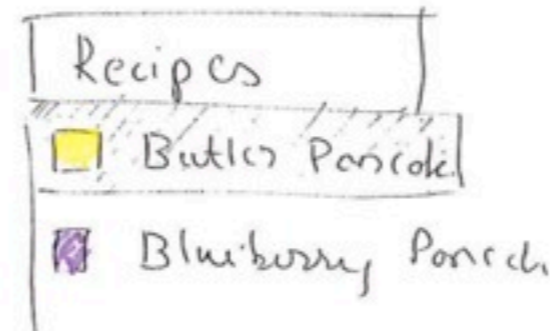 Recipes
Butter Pancak
Blueberry Panca